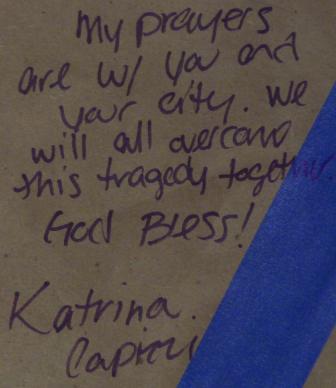 My prayers
are w/ you and
your city. We
will all overcome
this tragedy together.
God Bless!
Katrina